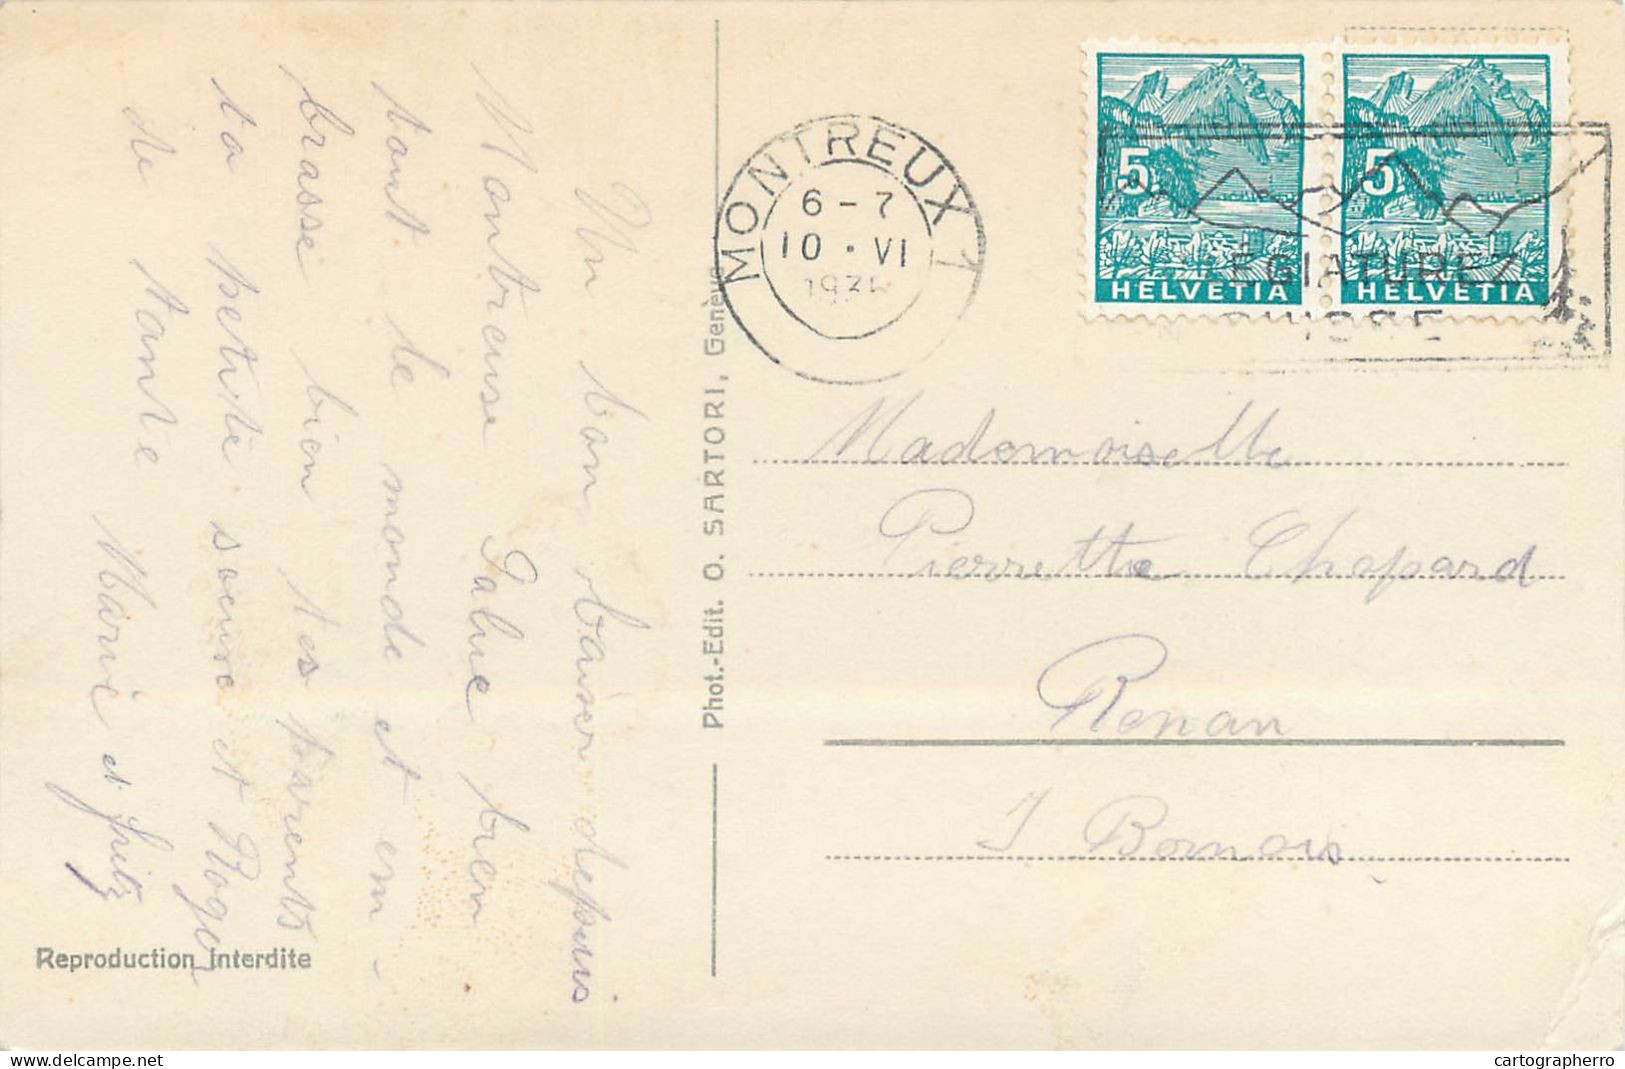 Un bon baiser depuis
Montreuse Salue bien
tout le monde et em-
brasse bien tes parents
ta petite soeure et Roger
de tante Marie et Fritz
Reproduction interdite
Phot.-Edit. O. SARTORI, Genève
MONTREUX 1
6-7
10·VI
HELVETIA
5
HELVETIA
5
EGIATUREZ
Mademoiselle
Pierrette Chopard
Renan
J Bernois
cartographerro